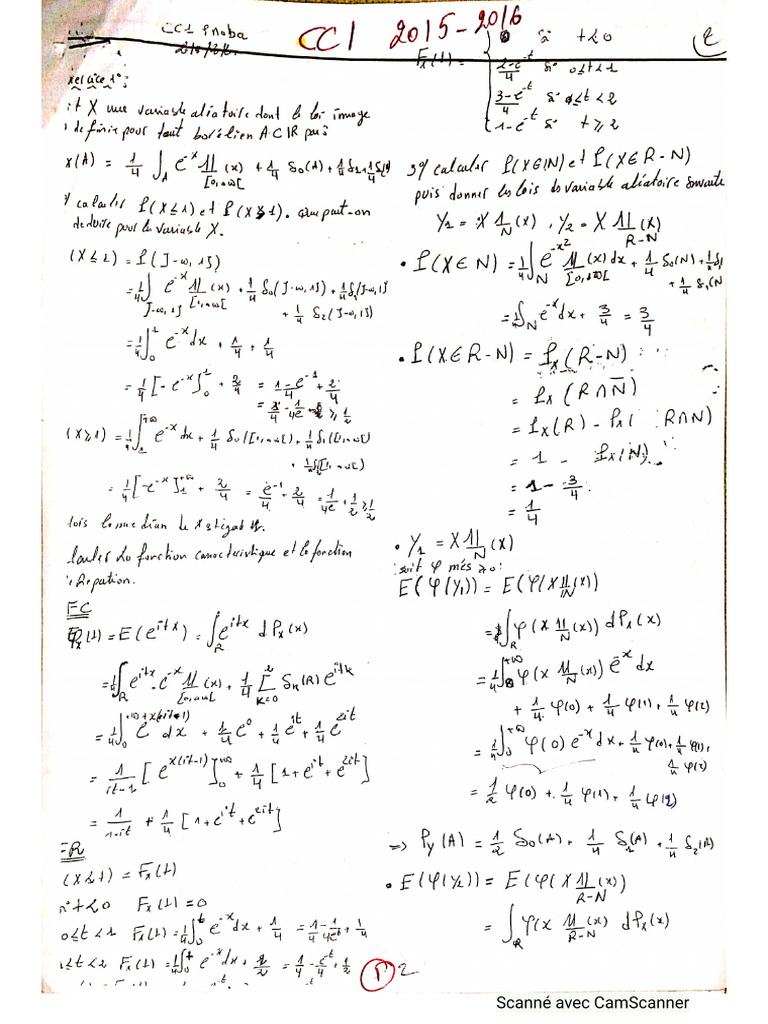 CC1 Proba
CC1 2015-2016
2
xercice 1°:
it X une variable aléatoire dont la loi image
définie pour tout borélien A⊂IR par:
x(A) = 1/4 ∫_A e^-x 1l_[0,+∞[ (x) + 1/4 δ0(A) + 1/4 δ1 + 1/4 δ2
calculer P(X≤1) et P(X≥1). Que peut-on
déduire pour la variable X.
(X≤1) = P(]-∞,1])
= 1/4 ∫_]-∞,1] e^-x 1l_[0,+∞[ (x) + 1/4 δ0(]-∞,1]) + 1/4 δ1(]-∞,1]
+ 1/4 δ2(]-∞,1])
= 1/4 ∫_0^1 e^-x dx + 1/4 + 1/4
= 1/4 [-e^-x]_0^1 + 2/4 = 1-e^-1/4 + 2/4
= 3/4 - 1/4e ≥ 1/2
(X≥1) = 1/4 ∫_1^+∞ e^-x dx + 1/4 δ0([1,+∞[) + 1/4 δ1([1,+∞[)
+ 1/4 δ2([1,+∞[)
= 1/4 [-e^-x]_1^+∞ + 2/4 = e^-1/4 + 2/4 = 1/4e + 1/2 ≥ 1/2
la fonction caractéristique et la fonction
FC
φx(t) = E(e^itx) = ∫_R e^itx dPx(x)
= 1/4 ∫_R e^itx . e^-x 1l_[0,+∞[ (x) + 1/4 Σ_k=0^2 δk(R) e^itk
= 1/4 ∫_0^+∞ e^x(it-1) dx + 1/4 e^0 + 1/4 e^it + 1/4 e^2it
= 1/it-1 [e^x(it-1)]_0^+∞ + 1/4 [1+e^it+e^2it]
= 1/1-it + 1/4 [1+e^it+e^2it]
=R
(X≤t) = Fx(t)
t<0 Fx(t) = 0
0≤t<1 Fx(t) = 1/4 ∫_0^t e^-x dx + 1/4 = 1/4 - 1/4e^t + 1/4
1≤t<2 Fx(t) = 1/4 ∫_0^t e^-x dx + 2/4 = 1/4 - e^-t/4 + 1/2
Fx(t) = { 0 si t<0
2-e^-t/4 si 0≤t<1
3-e^-t/4 si ≤t<2
1-e^-t si t≥2
3°/ calculer P(X∈IN) et P(X∈R-N)
puis donner les lois de variable aléatoire suivante
Y1 = X 1l_N (x) , Y2 = X 1l_R-N (x)
• P(X∈N) = 1/4 ∫_N e^-x2 1l_[0,+∞[ (x) dx + 1/4 δ0(N) + 1/4 δ1
+ 1/4 δ2(N
= 1/4 ∫_N e^-x dx + 3/4 = 3/4
• P(X∈R-N) = Px(R-N)
= Px(R∩N̄)
= Px(R) - Px( R∩N)
= 1 - Px(N)
= 1 - 3/4
= 1/4
• Y1 = X 1l_N (x)
soit φ mes ≥0:
E(φ(Y1)) = E(φ(X 1l_N (x))
= ∫_R φ(x 1l_N (x)) dPx(x)
= 1/4 ∫_0^+∞ φ(x 1l_N (x)) e^-x dx
+ 1/4 φ(0) + 1/4 φ(1) + 1/4 φ(2)
= 1/4 ∫_0^+∞ φ(0) e^-x dx + 1/4 φ(0) + 1/4 φ(1) +
1/4 φ(2)
= 1/2 φ(0) + 1/4 φ(1) + 1/4 φ(2)
=> Py(A) = 1/2 δ0(A) + 1/4 δ1(A) + 1/4 δ2(A)
• E(φ(Y2)) = E(φ(X 1l_R-N (x))
= ∫_R φ(x 1l_R-N (x) dPx(x)
2
Scanné avec CamScanner